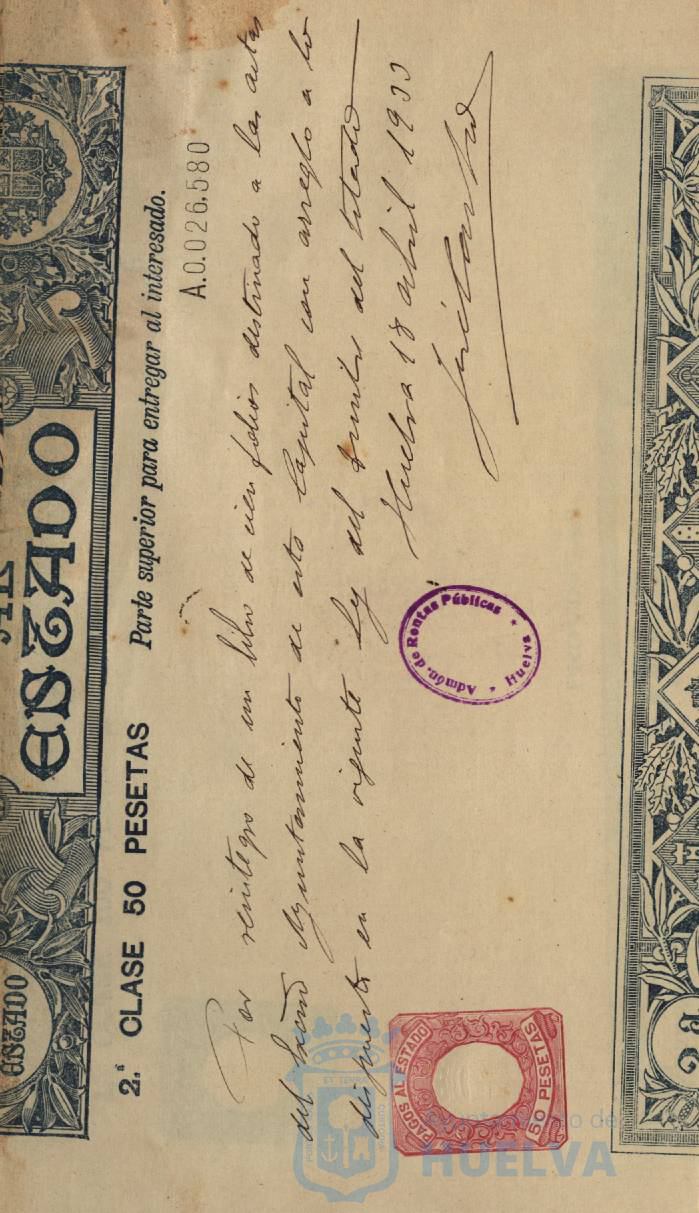 ESTADO
ESTADO
2.ª CLASE 50 PESETAS Parte superior para entregar al interesado.
A.0.026.580
Por reintegro de un libro de cien folios destinado a las actas
del Excmo Ayuntamiento de esta Capital con arreglo a lo
dispuesto en la vigente Ley del timbre del Estado
Huelva 18 abril 1933
Admón. de Rentas Públicas
* Huelva *
PAGOS AL ESTADO
50 PESETAS
Ayuntamiento de
HUELVA